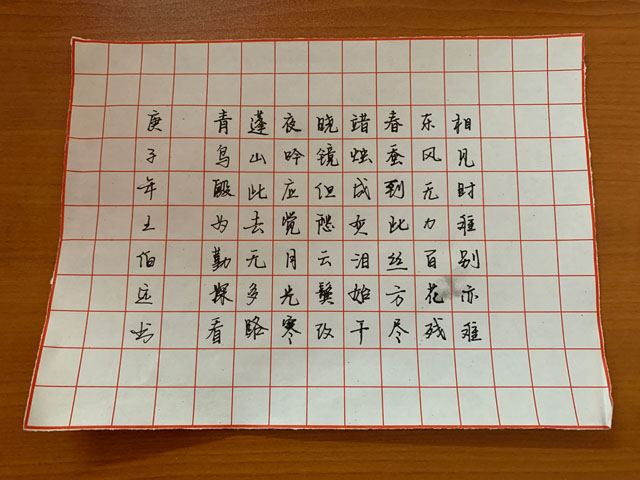 相见时难别亦难
东风无力百花残
春蚕到此丝方尽
蜡烛成灰泪始干
晓镜但愁云鬓改
夜吟应觉月光寒
蓬山此去无多路
青鸟殷为勤探看
庚子年王伯远书